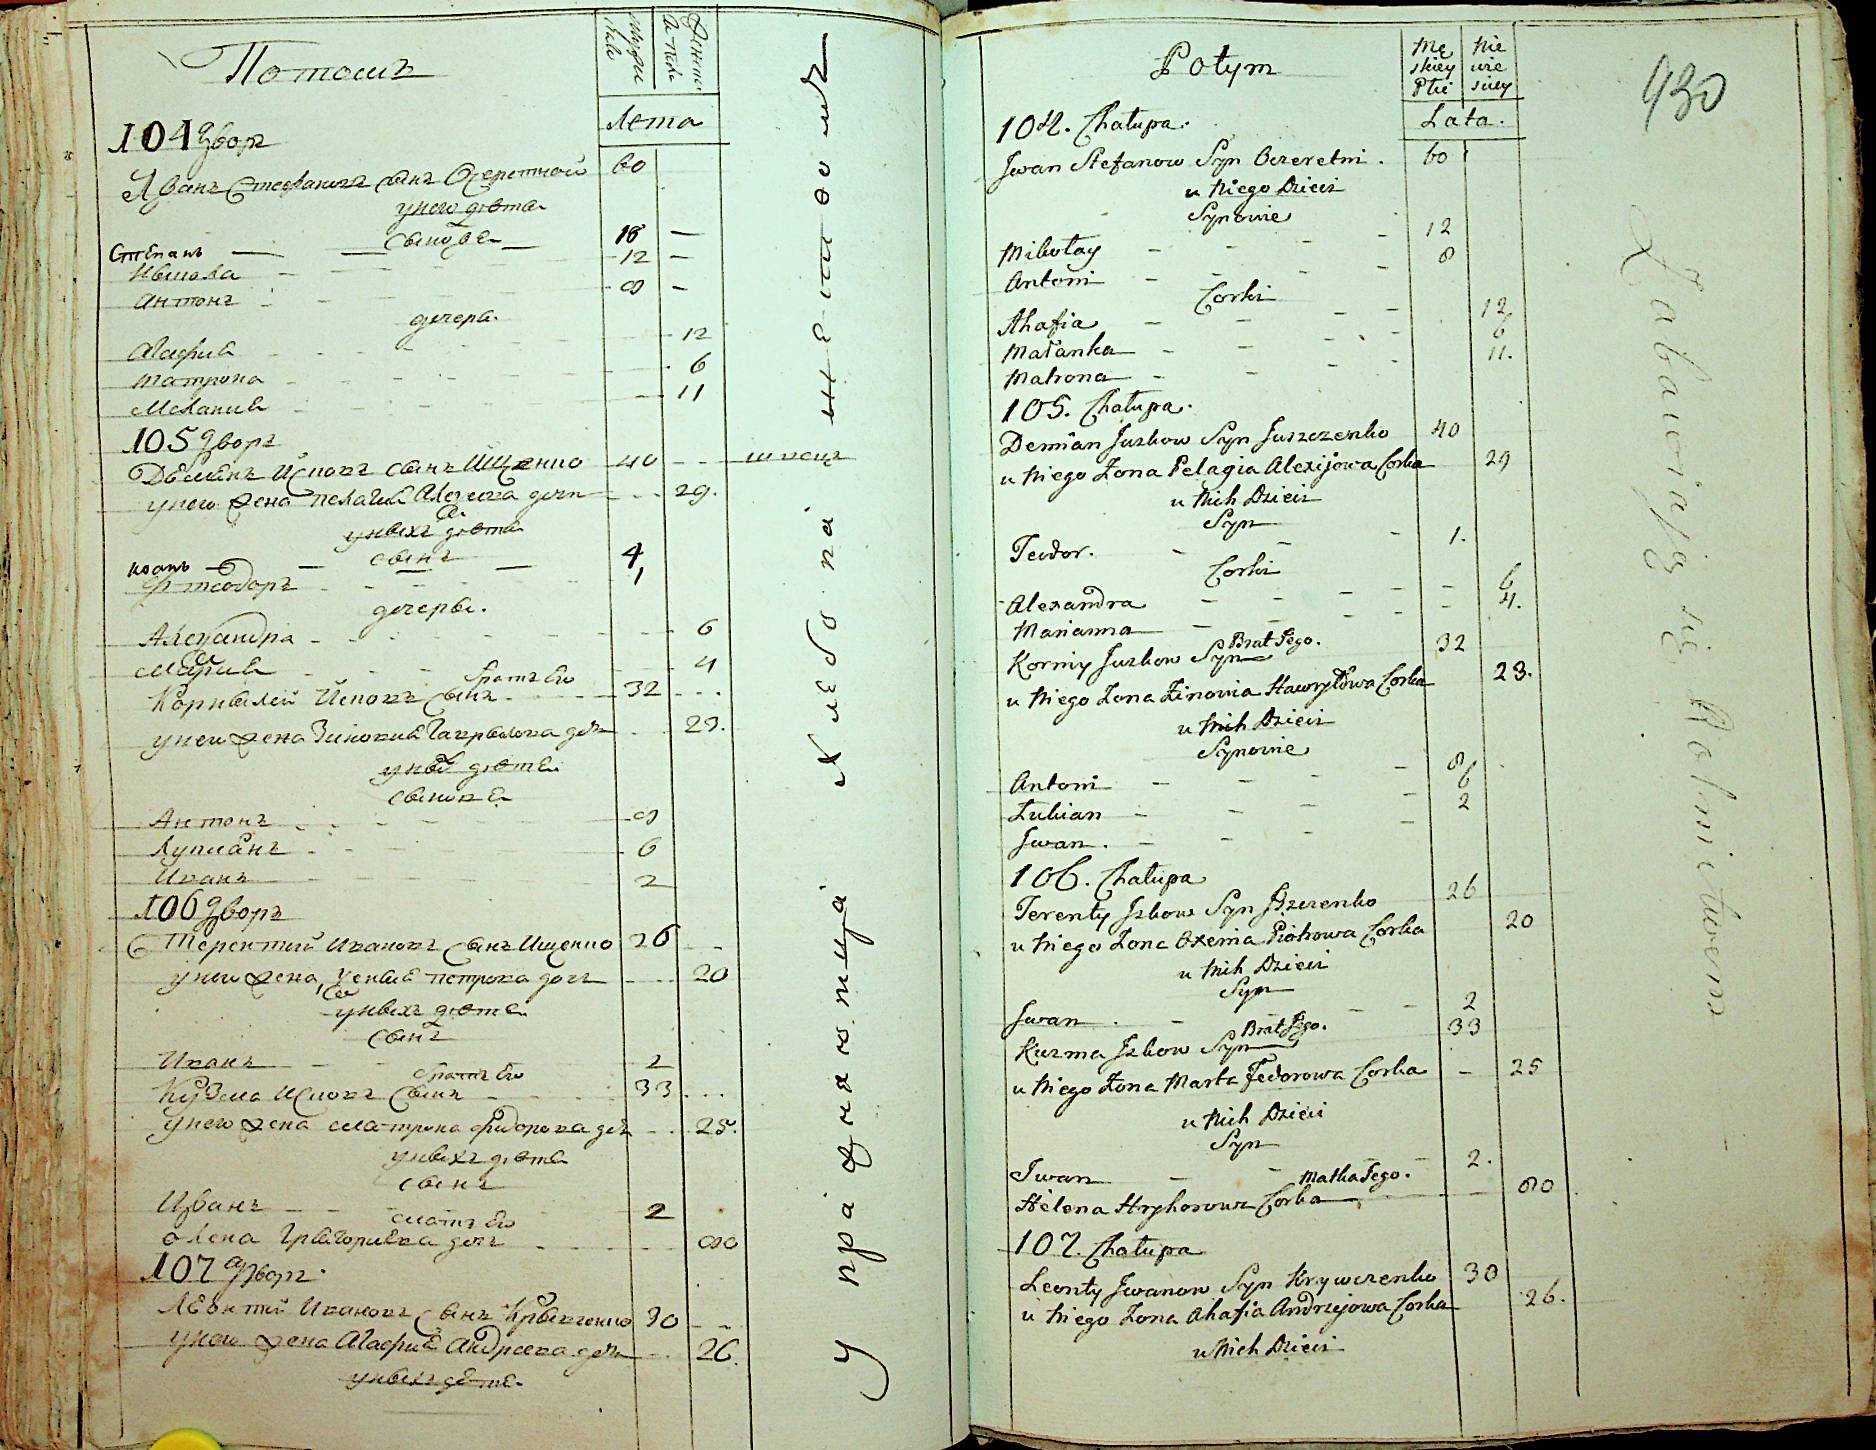 Потомъ
Мужеска пола
Женска
Лета
104 Дворъ
Иванъ Стефановъ сынъ Очеретной 60
у него дети
Сынове
Степанъ 18
Никола 12
Антонъ 8
дочери
Агафия 12
Матрона 6
Мелания 11
105 Дворъ
Демянъ Иековъ сынъ Ищенко 40 швецъ
у него жена Пелагия Алексеева дочь 29.
у нихъ дети
сынъ
4
Феодоръ 1
дочери.
Александра 6
Мария 4
братъ Его
Корнылей Иековъ сынъ 32
у него жена Зиновия Гаврилова дочь 23.
у нихъ дети
Сынове
Антонъ 8
Лукианъ 6
Иванъ 2
106 Дворъ
Терентий Ивановъ сынъ Ищенко 26
у него жена Ксения Петрова дочь 20
у нихъ дети
Сынъ
Иванъ 2
братъ Его
Кузма Исковъ сынъ 33
у него жена Матрона Фидорова дочь 25.
у нихъ дети
сынъ
Иванъ 2
мать Его
Олена Григориева дочь 80
107 Дворъ
Леонтий Ивановъ сынъ Кривченко 30
у него жена Агафия Андреева дочь 26.
у нихъ дети
Упражняются хлебопашествомъ
Potym
Męskiey Płci
Niewieściey
Lata.
430
104. Chałupa.
Jwan Stefanow Syn Oczeretni. 60
u Niego Dzieci
Synowie
Mikołay 12
Antoni 8
Corki
Ahafia 12
Małanka 6
Matrona 11.
105. Chałupa.
Demian Juskow Syn Juszczenko 40
u Niego Żona Pelagia Alexijowa Corka 29
u Nich Dzieci
Syn
Teodor. 1.
Corki
Alexandra 6
Marianna 4.
Brat Jego.
Korniy Juskow Syn 32
u Niego Żona Zinowia Hawryłowa Corka 23.
u Nich Dzieci
Synowie
Antoni 8
Łukian 6
Jwan. 2
106. Chałupa
Terenty Jskow Syn Jszczenko 26
u Niego Żona Oxenia Piotrowa Corka 20
u Nich Dzieci
Syn
Jwan. 2
Brat Jego.
Kuzma Jskow Syn 33
u Niego Żona Marta Fedorowa Corka 25
u Nich Dzieci
Syn
Jwan 2.
Matka Jego.
Helena Hryhorowa Corka 80
107. Chałupa
Leonty Jwanow Syn Krywczenko 30
u Niego Żona Ahafia Andrzejowa Corka 26.
u Nich Dzieci
Zabawiają się Rolnictwem